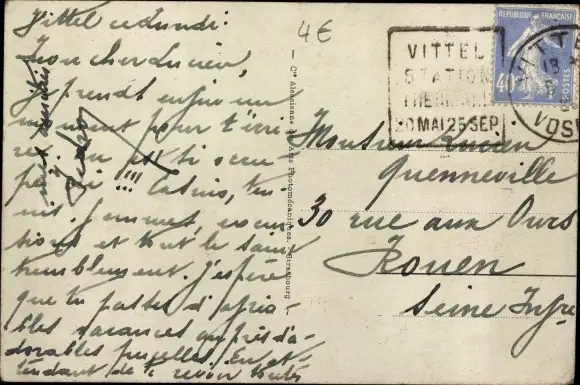 Vittel ce lundi :
Mon cher Lucien,
Je prends enfin un
moment pour t'écri-
re. On est si occu-
pé ici !!! Casino, ten-
nis, gourmet, excur-
sions et tout le saint
tremblement. J'espère
que tu passes d'agréa-
bles vacances auprès d'a-
dorables pucelles. En at-
tendant de te revoir
4€
VITTEL
STATION
THERMALE
20 MAI 25 SEP.
REPUBLIQUE FRANÇAISE
40
POSTES
VITTEL
VOSGES
Cie Alsacienne des Arts Photomécaniques, Strasbourg
Monsieur Lucien
Quenneville
30 rue aux Ours
Rouen
Seine Infre